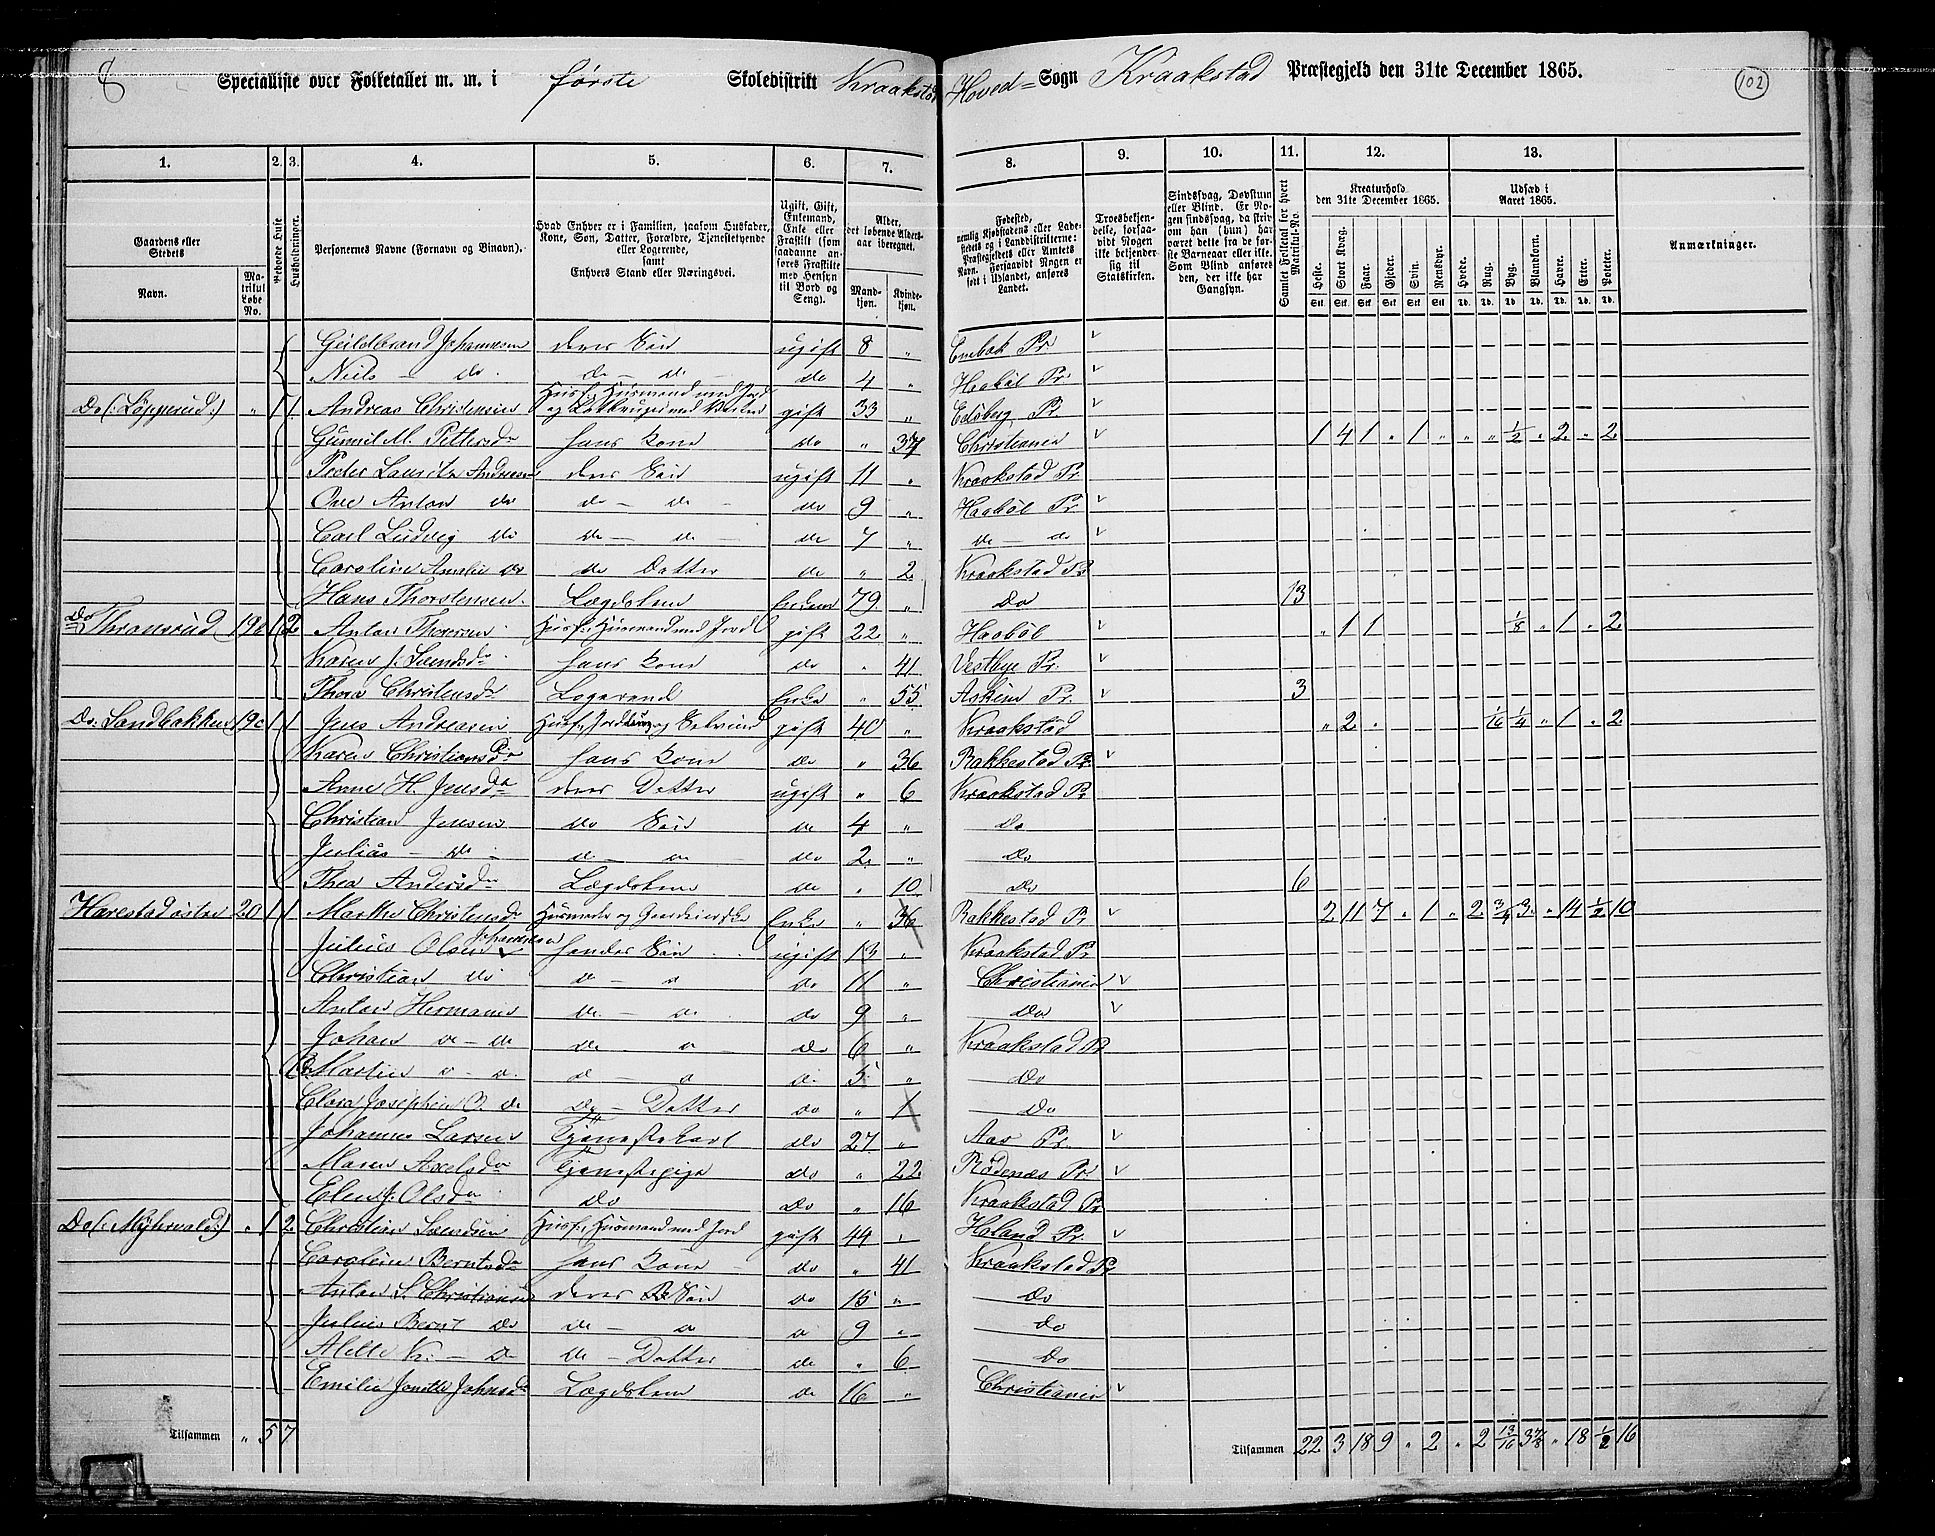 8 Specialliste over Folketallet m. m. i første Skoledistrikt Kraakstad Hoved= Sogn Kraakstad Præstegjeld den 31te December 1865. 102
1. 2. 3. 4. 5. 6. 7. 8. 9. 10. 11. 12. 13.
Gaardens eller Stedets
Navn.
Matrikul Løbe No.
Beboede Huse
Husholdninger.
Personernes Navne (Fornavn og Binavn).
Hvad Enhver er i Familien, saasom Husfader, Kone, Søn, Datter, Forældre, Tjenestetyende eller Logerende, samt Enhvers Stand eller Næringsvei.
Ugift, Gift, Enkemand, Enke eller Fraskilt (som saadanne anføres Fraskilte med Hensyn til Bord og Seng).
Alder, det løbende Aldersaar iberegnet.
Mandkjøn. Kvindekjøn.
Fødested, nemlig Kjøbstadens eller Ladestedets og i Landdistrikterne: Præstegjeldets eller Amtets Navn. Forsaavidt Nogen er født i Udlandet, anføres Landet.
Troesbekjendelse, forsaavidt Nogen ikke bekjender sig til Statskirken.
Sindssvag, Døvstum eller Blind. Er Nogen sindssvag, da skrives om han (hun) har været dette fra de første Barneaar eller ikke. Som Blind anføres den, der ikke har Gangsyn.
Samlet Folketal for hvert Matrikul-No.
Kreaturhold den 31te December 1865.
Heste. Stort Kvæg. Faar. Gjeder. Svin. Rensdyr.
Udsæd i Aaret 1865.
Hvede. Rug. Byg. Blandkorn. Havre. Erter. Poteter.
Anmærkninger.
Guldbrand Johannesen deres Søn ugift 8 " Enebak Pr
Niels - do. do - do - do 4 " Haabøl Pr.
Do (: Løpperud:) " 1 1. Andreas Christensen Husf. Husmand med Jord gift 33 " Edsberg Pr.
Gunnil M. Pettersdr hans Kone do " 37 Christiania 1 4 1 " 1 " " " 1/2 " 2 " 2
Peder Lauritz Andreasen deres Søn ugift 11 " Kraakstad Pr
Ove Anton do do - do - do 9 " Haabøl Pr
Carl Ludvig do do - do - do 7 " do - do
Caroline Amalie do do Datter do " 2. Kraakstad Pr
Hans Thorstensen. Lægdslem Enkem 79 " Do 13
Do Thransrud 19b 1 2. Anton Thoresen Husf. Husmand med Jord gift 22 " Haabøl " 1 1 1/8 " 1 " 2
Karen J. Svendsdr hans Kone do " 41 Vestbye Pr.
Thora Christensdr Logerende Enke " 55 Askim Pr. 3
Do. Sandbakken 19c 1 1 Jens Andreasen Husf., Jordbrug og Selveier gift 40 " Kraakstad " 2 " 1/16 1/4 " 1 " 2
Karen Christiansdr hans Kone do " 36 Rakkestad Pr.
Anne H. Jensdr deres Datter ugift " 6 Kraakstad Pr
Christian Jensen do Søn do 4 " do
Julius - do - d - d do 2. " do
Thea Andersdr Lægdslem do " 10 do 6
Harestad østre 20 1 1 Marthe Christensdr Husmoder og Gaardeierske Enke " 36 Rakkestad Pr 2 11 7 " 1 " 2 3/4 3 " 14 1/2 10
Julius Olsen Johannesen hendes Søn ugift 13 " Kraakstad Pr
Christian do d - d do 11 " Christiania
Anton Herman do - d do 9 " Do
Johan d - do do - d do 6 " Kraakstad Pr
Martin d - d. d - d d. 5 " Do
Clara Josephine O. do do - Datter do " 1 Do
Johannes Larsen Tjenestekarl do 27 " Aas Pr.
Maren Axelsdr Tjenestepige do " 22 Rødenæs Pr.
Elen J. Olsdr do do " 16 Kraakstad Pr
Do (: Myhrvold:) " 1 2 Christian Svendsen Husf., Husmand med Jord gift 44 " Høland Pr.
Caroline Berntsdr hans Kone do " 41 Kraakstad Pr
Anton S. Christiansen deres Søn do 15 " do
Julius Bernt do do - d d 9 " do
Alette K. - do do - Datter do " 6 Do
Emilie Lægdslem do 16 " Christiania
Tilsammen " 5 7 Tilsammen 22 3 18 9 " 2 " 2 13/16 3 7/8 " 18 1/2 16